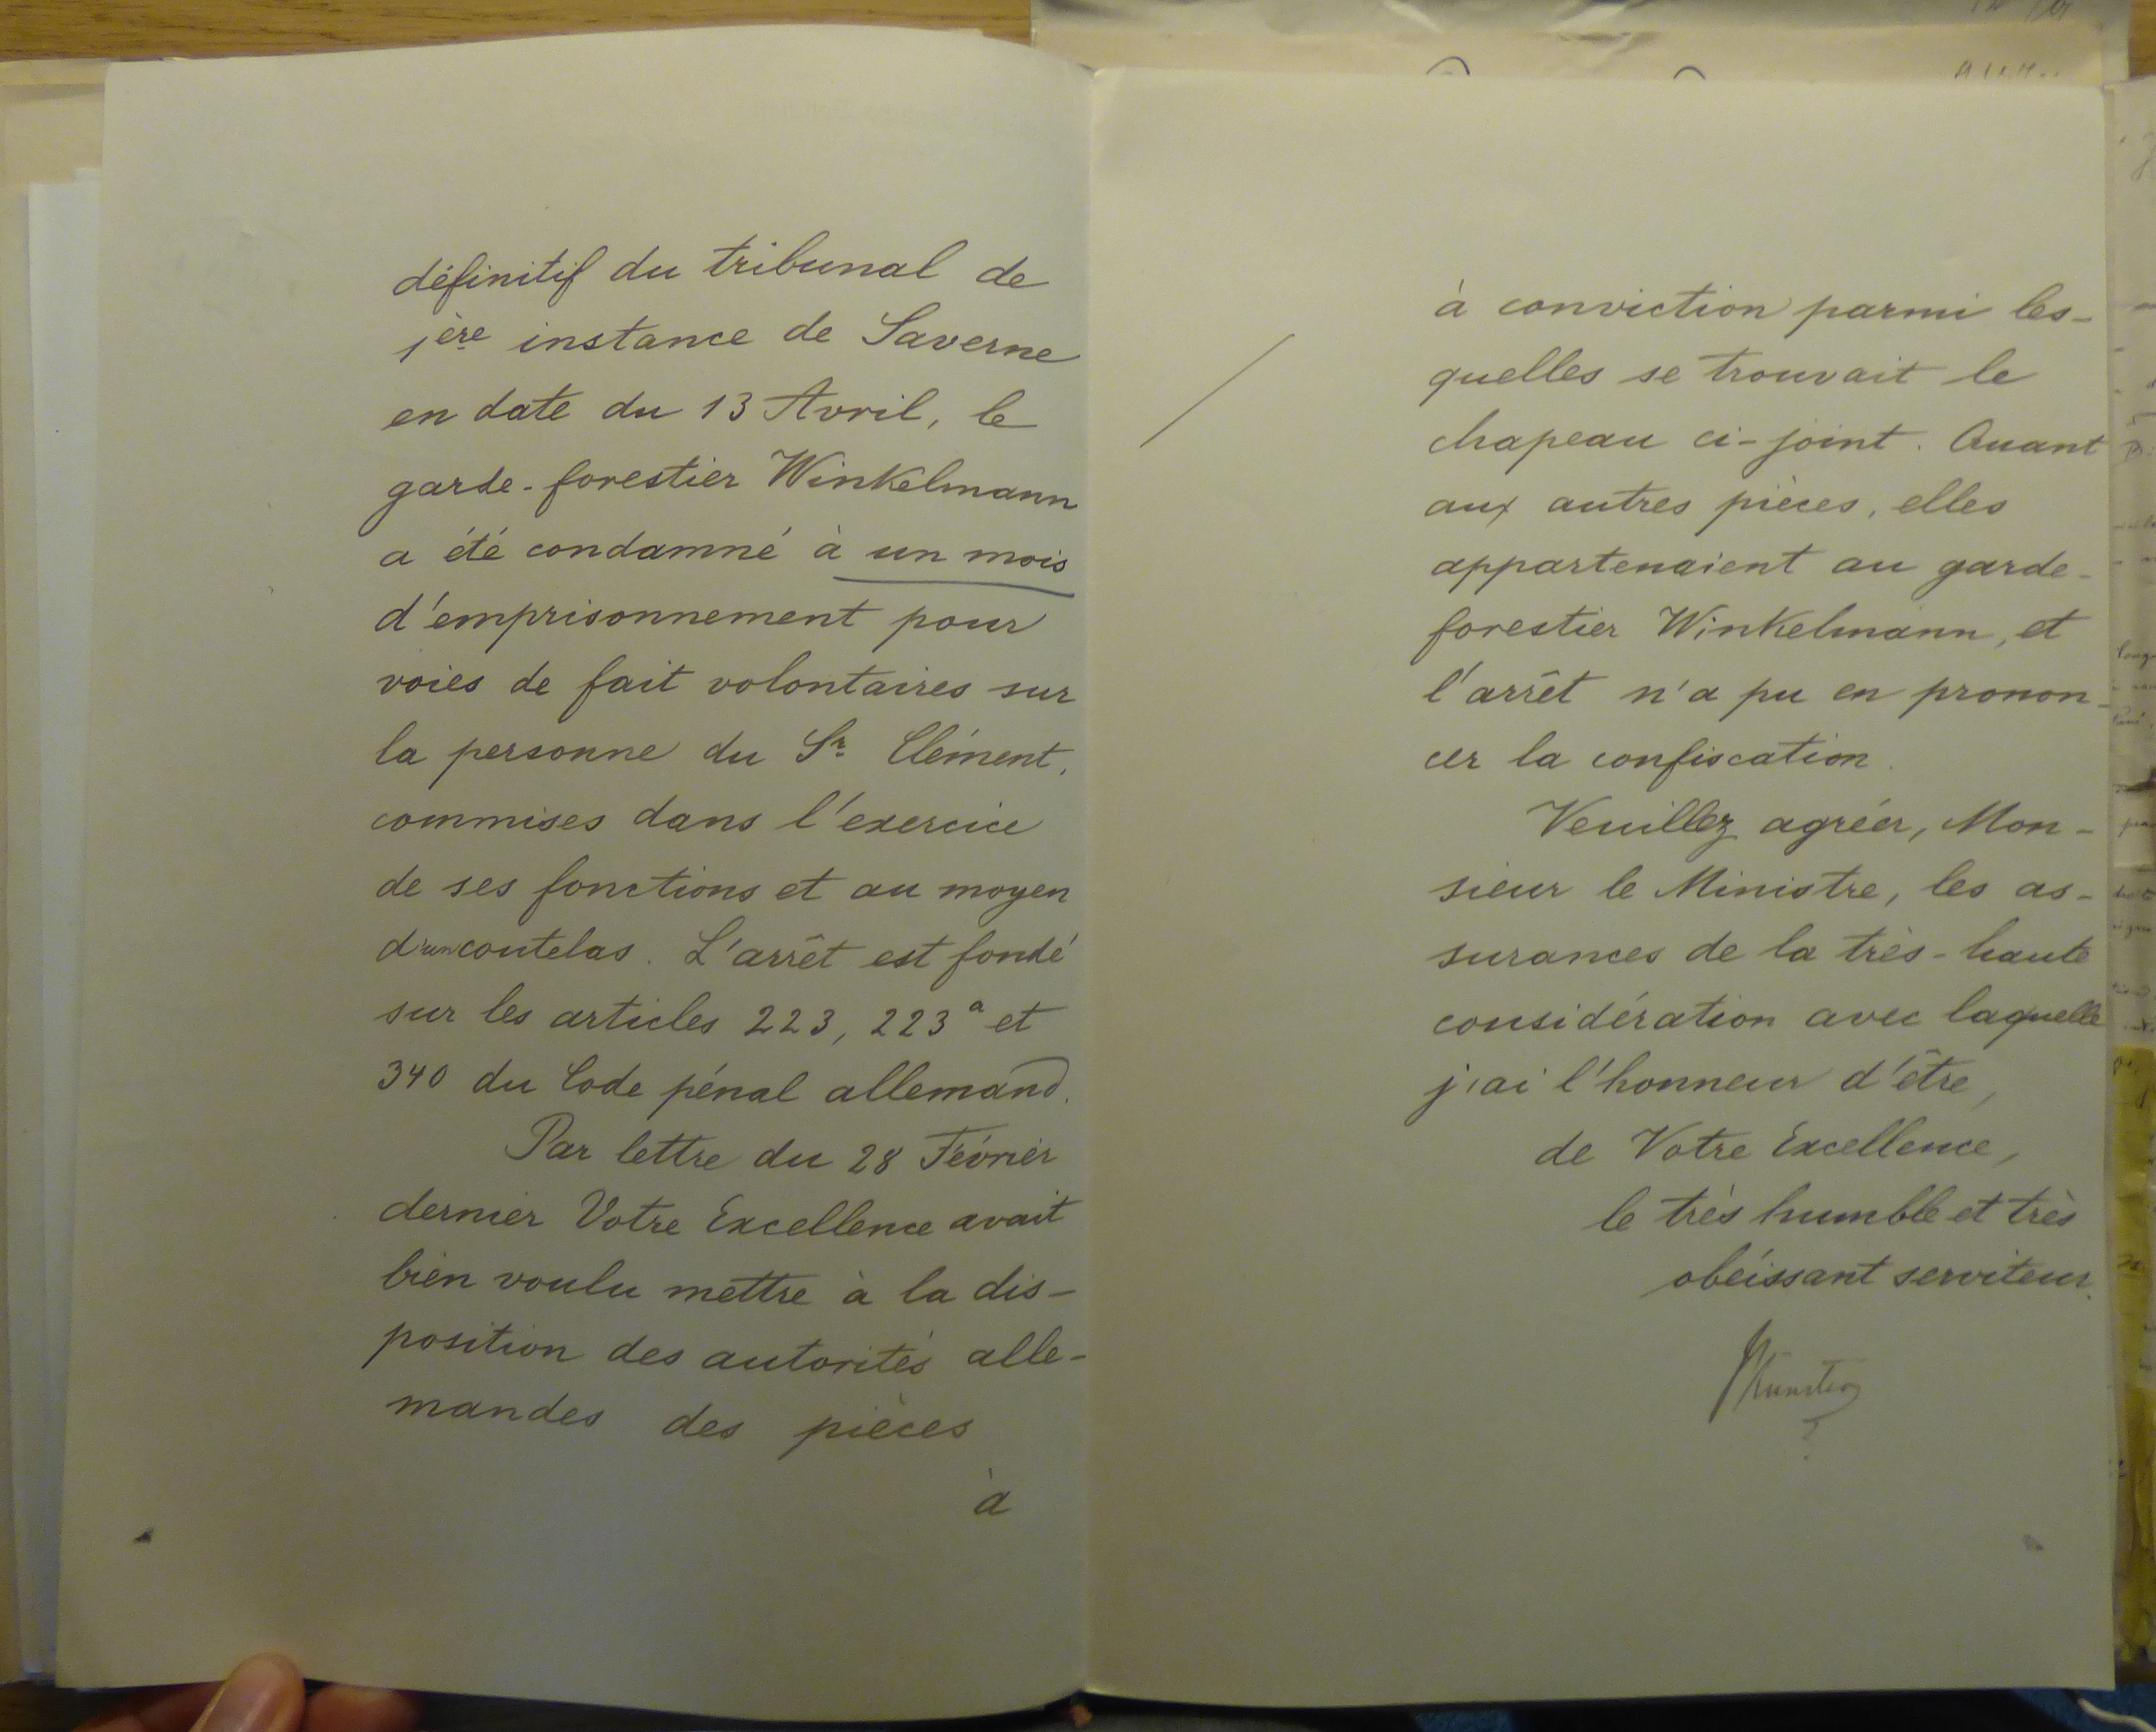 définitif du tribunal de
1ère instance de Saverne
en date du 13 Avril, le
garde-forestier Winkelmann
a été condamné à un mois
d'emprisonnement pour
voies de fait volontaires sur
la personne du Sr. Clément,
commises dans l'exercice
de ses fonctions et au moyen
d'un coutelas. L'arrêt est fondé
sur les articles 223, 223a et
340 du Code pénal allemand.
Par lettre du 28 Février
dernier Votre Excellence avait
bien voulu mettre à la dis-
position des autorités alle-
mandes des pièces
à
à conviction parmi les-
quelles se trouvait le
chapeau ci-joint. Quant
aux autres pièces, elles
appartenaient au garde-
forestier Winkelmann, et
l'arrêt n'a pu en pronon-
cer la confiscation.
Veuillez agréer, Mon-
sieur le Ministre, les as-
surances de la très-haute
considération avec laquelle
j'ai l'honneur d'être,
de Votre Excellence,
le très humble et très
obéissant serviteur.
Münster